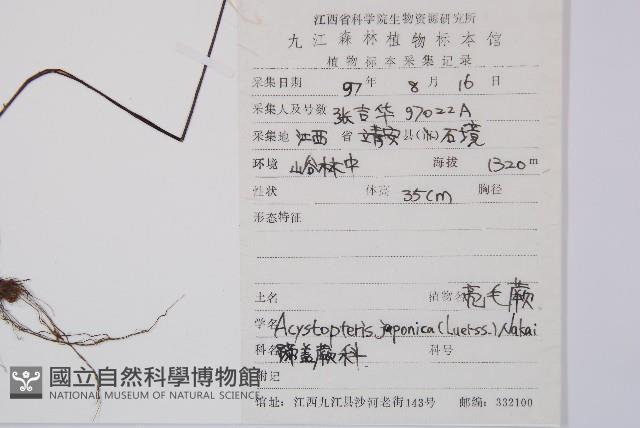 江西省科学院生物资源研究所
九江森林植物标本馆
植物标本采集记录
采集日期 97年 8月 16日
采集人及号数 张吉华 97022A
采集地 江西 省 靖安 县(市) 石境
环境 山谷林中 海拔 1320m
性状 体高 35cm 胸径
形态特征
土名 植物名 亮毛蕨
学名 Acystopteris japonica (Luerss.) Nakai
科名 蹄盖蕨科 科号
附记
馆址:江西九江县沙河老街143号 邮编:332100
國立自然科學博物館
NATIONAL MUSEUM OF NATURAL SCIENCE